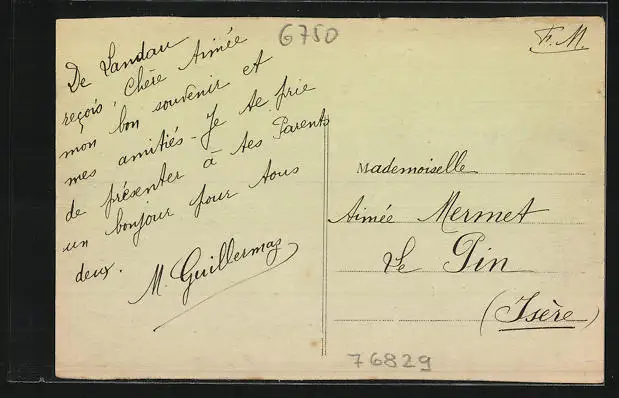 6750
F. M.
De Landau
reçois, Chère Aimée
mon bon souvenir et
mes amitiés - Je te prie
de présenter à tes Parents
un bonjour pour tous
deux.
M. Guillermaz
Mademoiselle
Aimée Mermet
Le Pin
(Isère)
76829